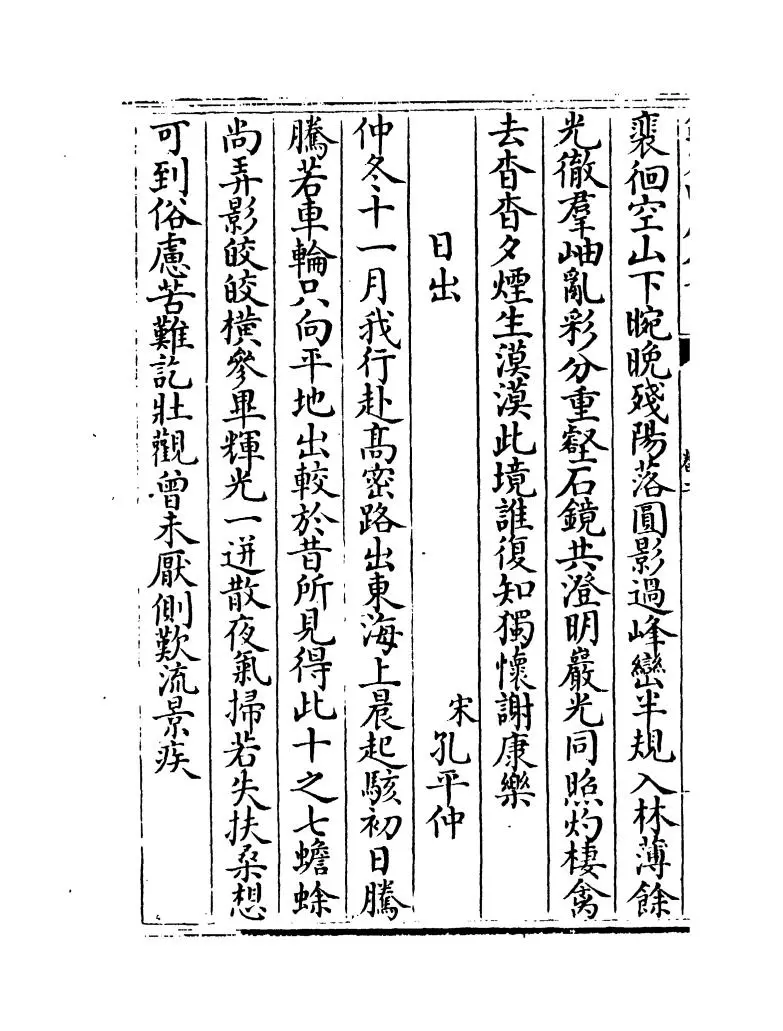 裴徊空山下晼晚殘陽落圓影過峰巒半規入林薄餘
光徹羣岫亂彩分重壑石鏡共澄明巖光同照灼棲禽
去杳杳夕煙生漠漠此境誰復知獨懷謝康樂
日出
宋孔平仲
仲冬十一月我行赴高密路出東海上晨起駭初日騰
騰若車輪只向平地出較於昔所見得此十之七蟾蜍
尚弄影皎皎橫參畢輝光一迸散夜氣掃若失扶桑想
可到俗慮苦難訖壯觀曾未厭側歎流景疾